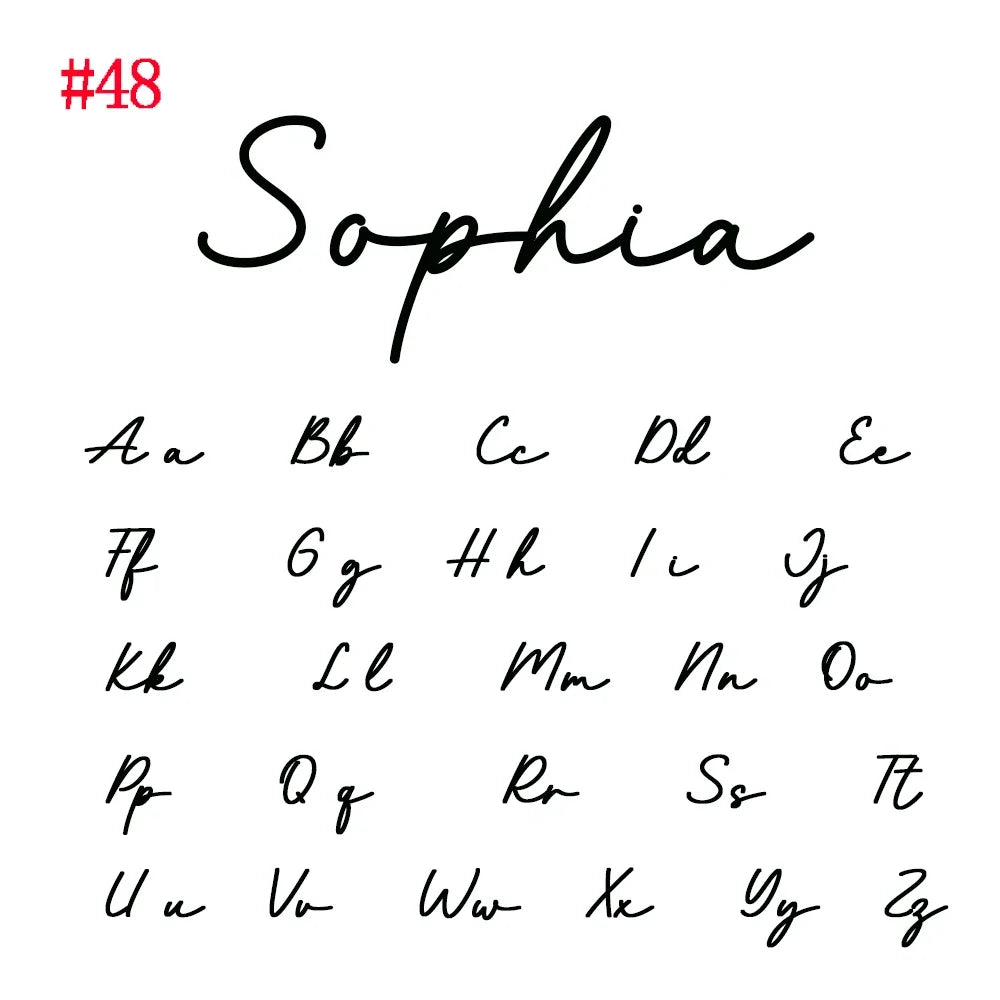 #48
Sophia
A a Bb Cc Dd Ee
Ff G g H h I i Jj
Kk L l Mm Nn Oo
Pp Q q Rr Ss Tt
U u Vv Ww Xx Yy Zz